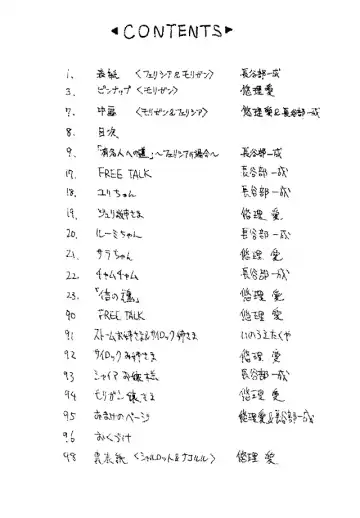 ◀CONTENTS▶
1. 表紙 〈フェリシア&モリガン〉 長谷部一成
3. ピンナップ〈モリガン〉 悠理愛
7. 中扉 〈モリガン&フェリシア〉 悠理愛&長谷部一成
8. 目次
9. 「有名人への道」〜フェリシアの場合〜 長谷部一成
17. FREE TALK 長谷部一成
18. ユリちゃん 長谷部一成
19. ジェリ姉さま 悠理 愛
20. ルーミちゃん 長谷部一成
21. サラちゃん 悠理 愛
22. チャムチャム 長谷部一成
23. 悠理 愛
90 FREE TALK 悠理 愛
91 ストームお姉さま&サイロック姉さま いのうえたくや
92 サイロックお姉さま 悠理 愛
93 シャイアお嬢様 長谷部一成
94 モリガン嬢さま 悠理 愛
95 おまけのページ 悠理愛&長谷部一成
96 おくづけ
98 裏表紙 〈シャルロット&ナコルル〉 悠理 愛